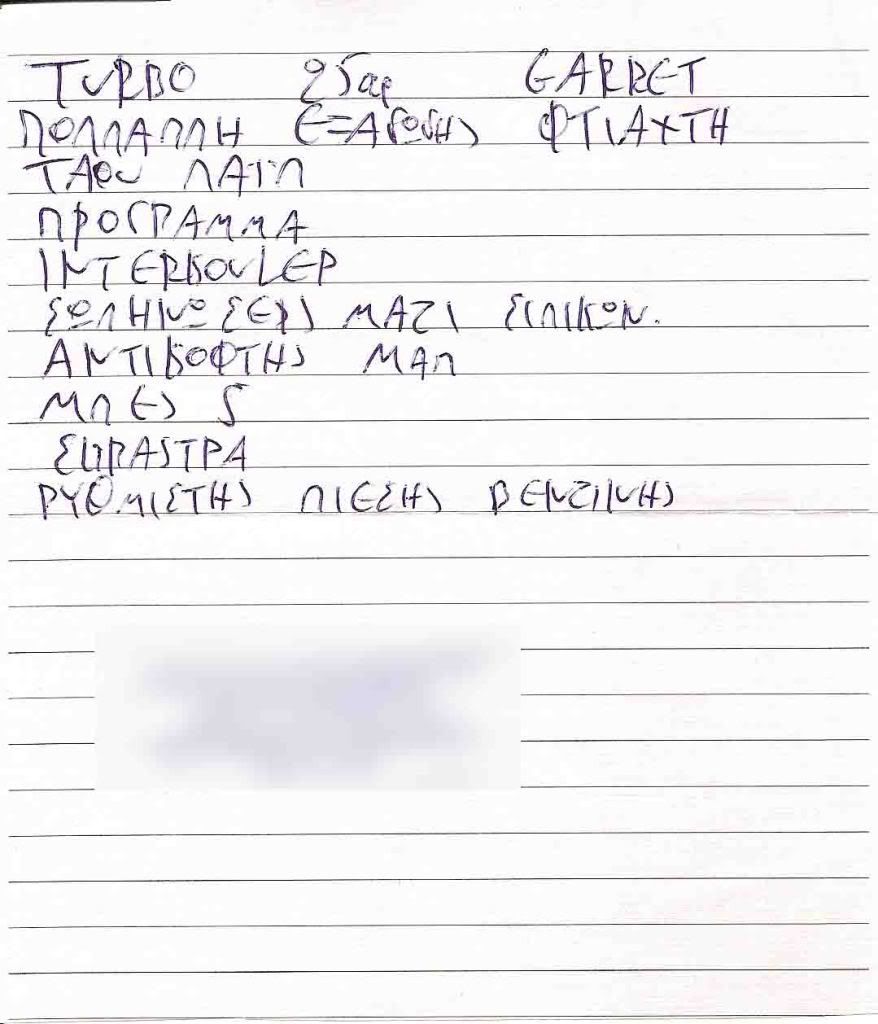 TURBO 25αρ GARRET
ΠΟΛΛΑΠΛΗ ΕΞΑΓΩΓΗΣ ΦΤΙΑΧΤΗ
ΠΑΪΠ
ΠΡΟΓΡΑΜΜΑ
INTERKOULER
ΣΩΛΗΝΩΣΕΙΣ ΜΑΖΙ ΣΙΛΙΚΟΝ.
ΑΝΤΙΚΟΦΤΗΣ ΜΑΠ
ΜΠΕΣ
ΡΥΘΜΙΣΤΗΣ ΠΙΕΣΗΣ ΒΕΝΖΙΝΗΣ